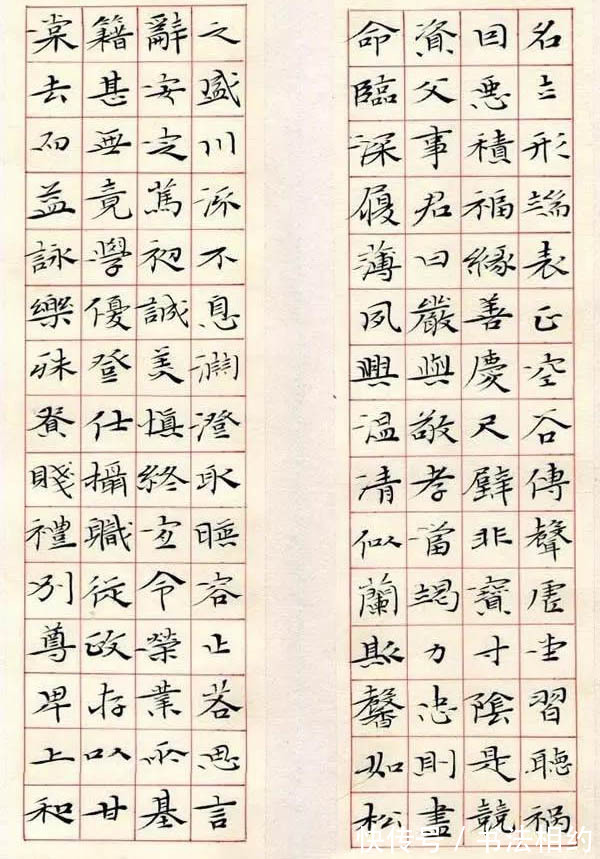 名立形端表正空谷傳聲虛堂習聽禍
因悪積福緣善慶尺璧非寶寸陰是競
資父事君曰嚴與敬孝當竭力忠則盡
命臨深履薄夙興温清似蘭斯馨如松
之盛川流不息淵澄取暎容止若思言
辭安定篤初誠美慎終宜令榮業所基
籍甚無竟學優登仕攝職從政存以甘
棠去而益詠樂殊貴賤禮別尊卑上和
快传号 / 书法相约